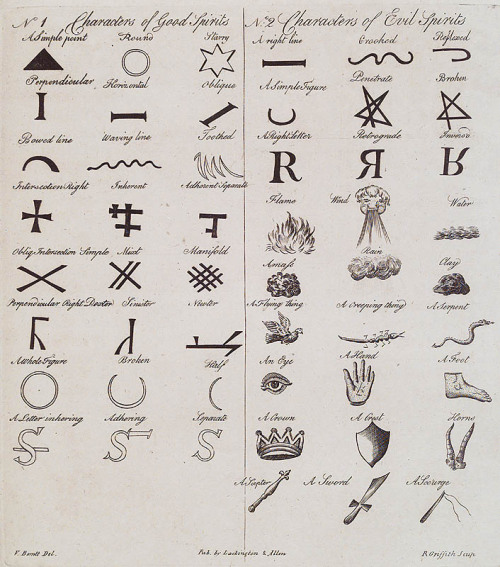 Nº 1 Characters of Good Spirits
A Simple point Round Starry
Perpendicular Horizontal Oblique
Bowed line Waving line Toothed
Intersection Right Inherent Adherent Separate
Obliq: Intersection Simple Mixt Manifold
Perpendicular Right Dexter Sinister Neuter
A Whole Figure Broken Half
A Letter inhering Adhering Separate
S S T S
Nº 2 Characters of Evil Spirits
A right line Crooked Reflexed
A Simple Figure Penetrate Broken
A Right Letter Retrograde Inversed
R R R
Flame Wind Water
A mass Rain Clay
A Flying thing A Creeping thing A Serpent
An Eye A Hand A Foot
A Crown A Crest Horns
A Scepter A Sword A Scourge
F. Barrett Del. Pub. by Lackington & Allen R Griffith Sculp